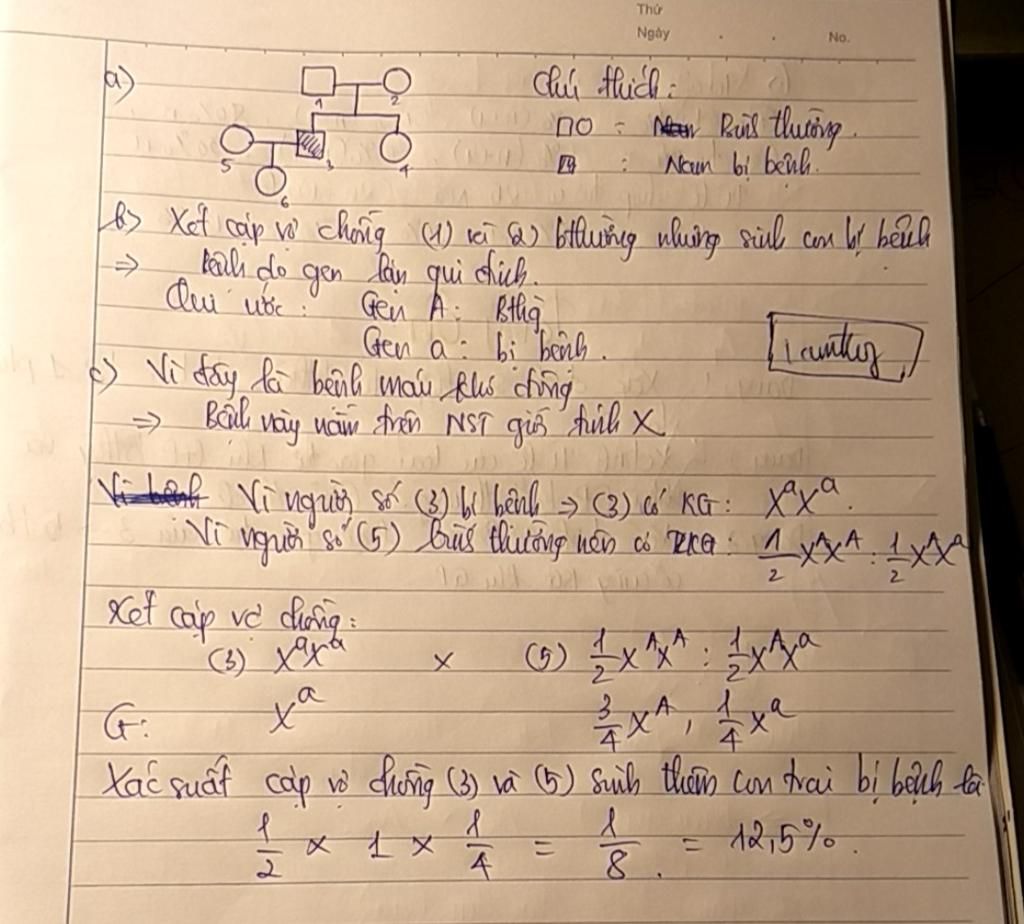 Thứ
Ngày . . No.
a)
Chú thích:
1 2
□○ : Bình thường.
5 3 4
: Nam bị bệnh.
6
b) Xét cặp vợ chồng (1) và (2) bthường nhưng sinh con bị bệnh
⇒ bệnh do gen lặn qui định.
Qui ước: Gen A: Bthg
Gen a: bị bệnh.
c) Vì đây là bệnh máu khó đông
⇒ Bệnh này nằm trên NST giới tính X
Vì người số (3) bị bệnh ⇒ (3) có KG: XᵃXᵃ.
Vì người số (5) bình thường nên có KG: 1/2 XᴬXᴬ : 1/2 XᴬXᵃ
Xét cặp vợ chồng:
(3) XᵃXᵃ x (5) 1/2 XᴬXᴬ : 1/2 XᴬXᵃ
G: Xᵃ 3/4 Xᴬ, 1/4 Xᵃ
Xác suất cặp vợ chồng (3) và (5) sinh thêm con trai bị bệnh là
1/2 x 1 x 1/4 = 1/8 = 12,5%.